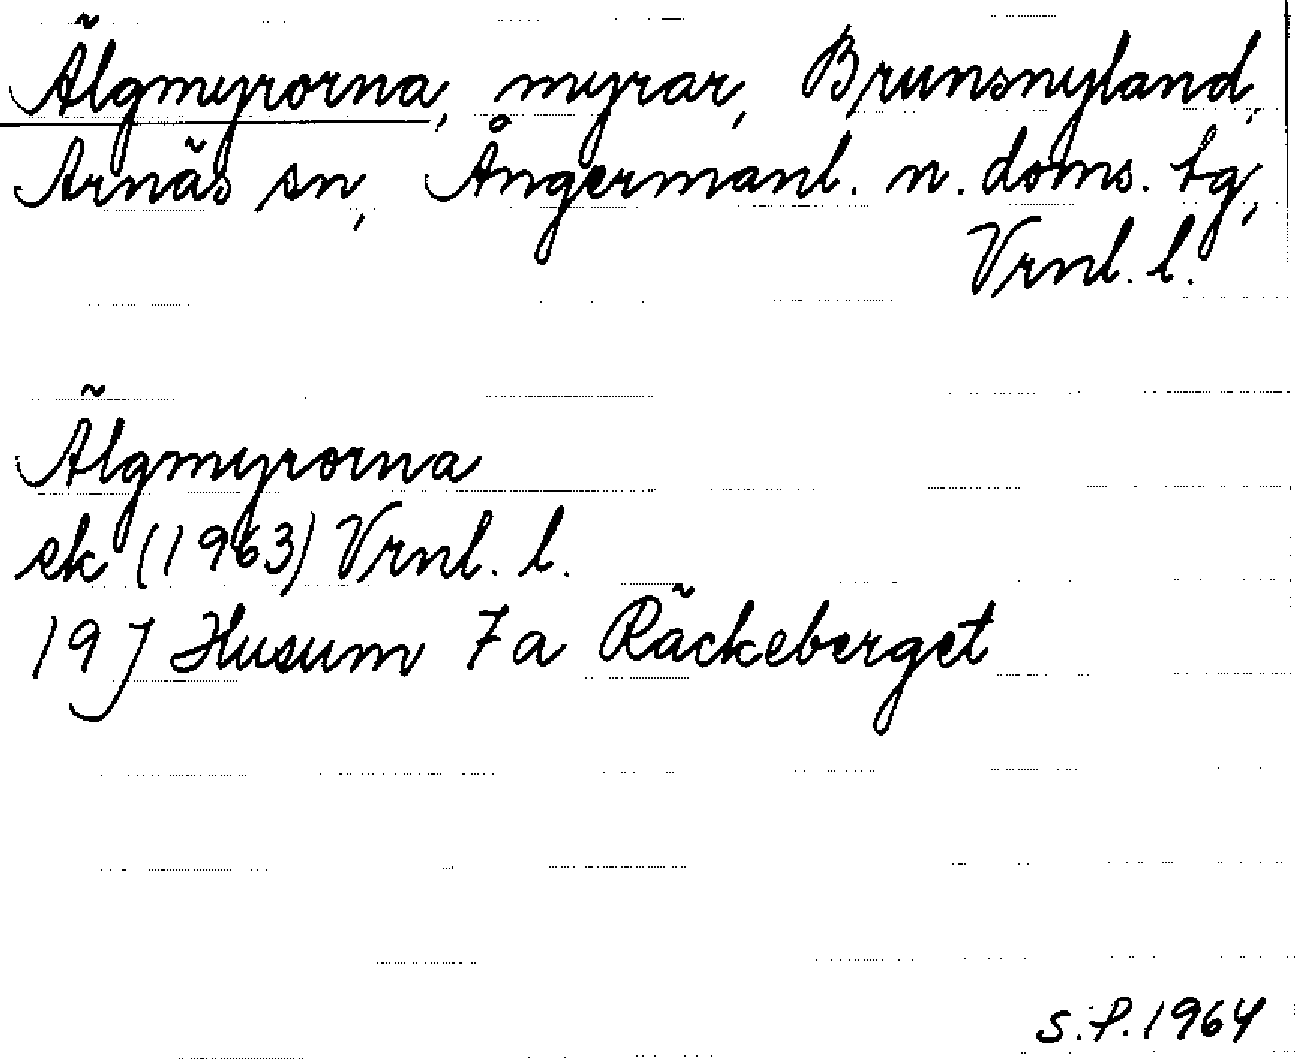 Älgmyrorna, myrar, Brunsnyland,
Arnäs sn, Ångermanl. n. doms. tg,
Vrnl. l.
Älgmyrorna
ek (1963) Vrnl. l.
19 J Husum 7a Räckeberget
S.P. 1964